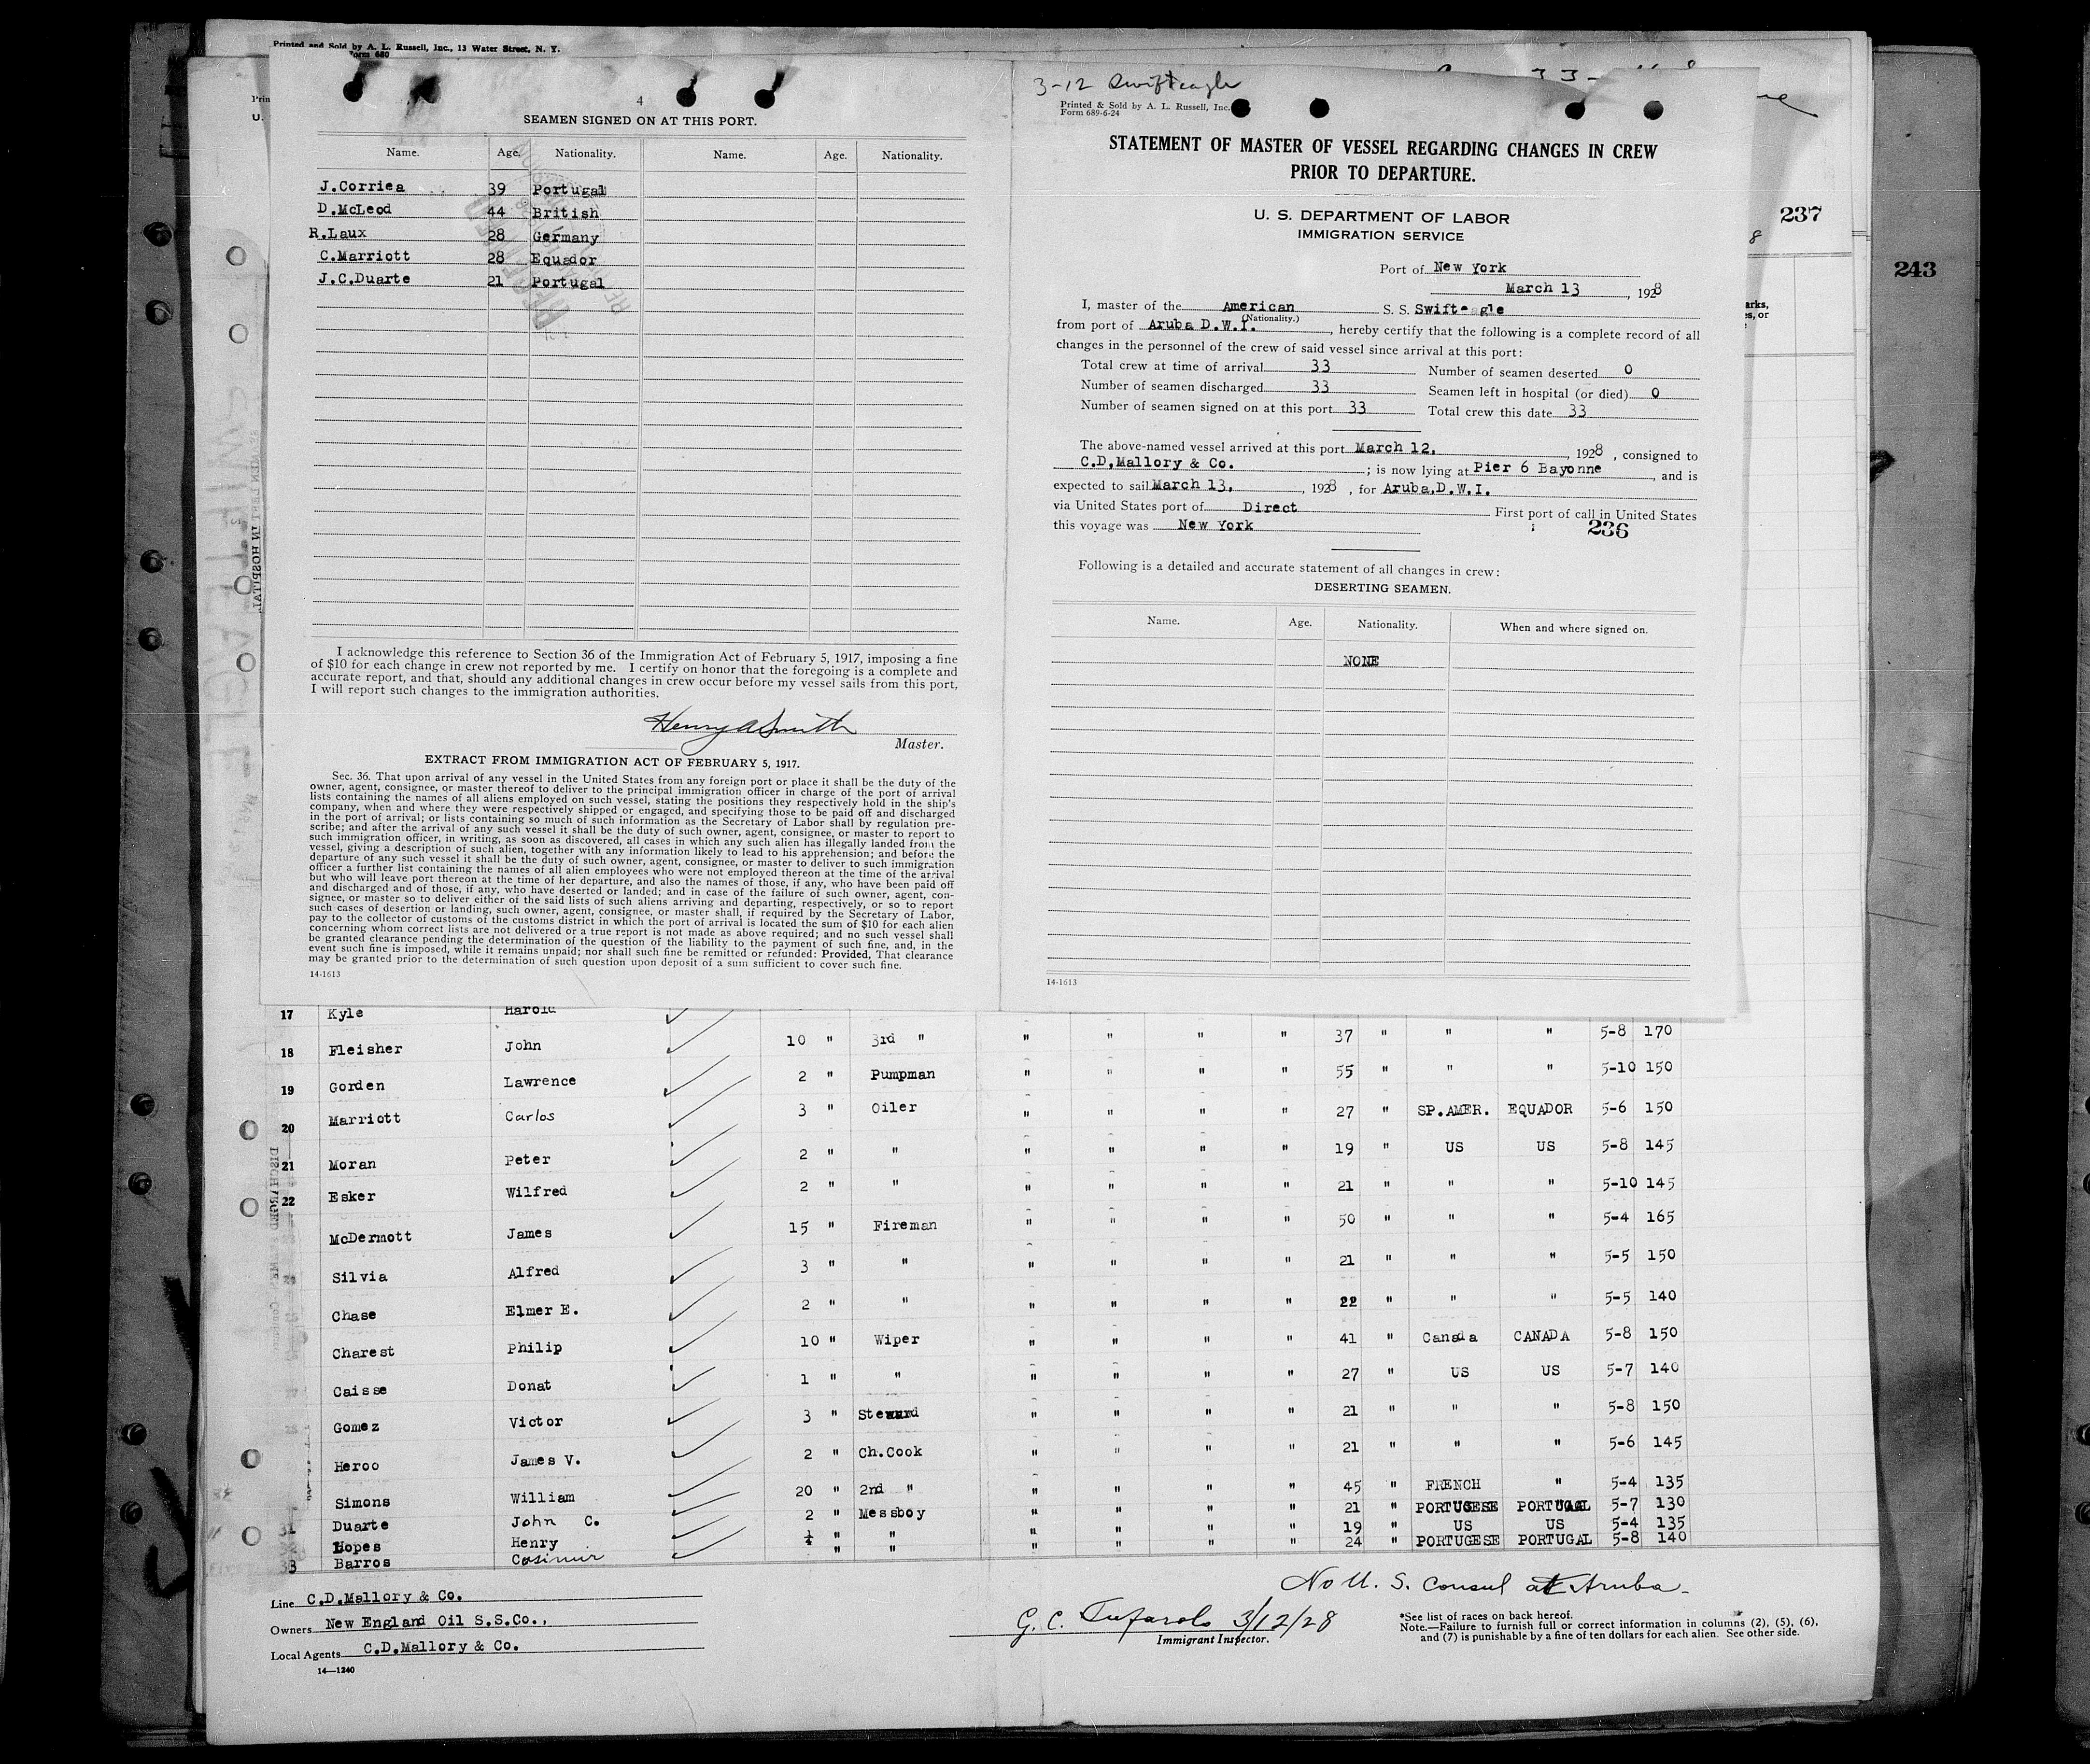 Printed and Sold by A. L. Russell, Inc., 13 Water Street, N. Y.
Form 680
4
SEAMEN SIGNED ON AT THIS PORT.
Name. Age. Nationality. Name. Age. Nationality.
J.Corriea 39 Portugal
D.McLeod 44 British
R.Laux 28 Germany
C.Marriott 28 Equador
J.C.Duarte 21 Portugal
I acknowledge this reference to Section 36 of the Immigration Act of February 5, 1917, imposing a fine
of $10 for each change in crew not reported by me. I certify on honor that the foregoing is a complete and
accurate report, and that, should any additional changes in crew occur before my vessel sails from this port,
I will report such changes to the immigration authorities.
Henry A Smith
Master.
EXTRACT FROM IMMIGRATION ACT OF FEBRUARY 5, 1917.
Sec. 36. That upon arrival of any vessel in the United States from any foreign port or place it shall be the duty of the
owner, agent, consignee, or master thereof to deliver to the principal immigration officer in charge of the port of arrival
lists containing the names of all aliens employed on such vessel, stating the positions they respectively hold in the ship's
company, when and where they were respectively shipped or engaged, and specifying those to be paid off and discharged
in the port of arrival; or lists containing so much of such information as the Secretary of Labor shall by regulation pre-
scribe; and after the arrival of any such vessel it shall be the duty of such owner, agent, consignee, or master to report to
such immigration officer, in writing, as soon as discovered, all cases in which any such alien has illegally landed from the
vessel, giving a description of such alien, together with any information likely to lead to his apprehension; and before the
departure of any such vessel it shall be the duty of such owner, agent, consignee, or master to deliver to such immigration
officer a further list containing the names of all alien employees who were not employed thereon at the time of the arrival
but who will leave port thereon at the time of her departure, and also the names of those, if any, who have been paid off
and discharged and of those, if any, who have deserted or landed; and in case of the failure of such owner, agent, con-
signee, or master so to deliver either of the said lists of such aliens arriving and departing, respectively, or so to report
such cases of desertion or landing, such owner, agent, consignee, or master shall, if required by the Secretary of Labor,
pay to the collector of customs of the customs district in which the port of arrival is located the sum of $10 for each alien
concerning whom correct lists are not delivered or a true report is not made as above required; and no such vessel shall
be granted clearance pending the determination of the question of the liability to the payment of such fine, and, in the
event such fine is imposed, while it remains unpaid; nor shall such fine be remitted or refunded: Provided, That clearance
may be granted prior to the determination of such question upon deposit of a sum sufficient to cover such fine.
14-1613
3-12 Swifteagle
Printed & Sold by A. L. Russell, Inc.
Form 689-6-24
STATEMENT OF MASTER OF VESSEL REGARDING CHANGES IN CREW
PRIOR TO DEPARTURE.
U. S. DEPARTMENT OF LABOR
IMMIGRATION SERVICE
Port of New York
March 13, 1928
I, master of the American S. S. Swifteagle
(Nationality.)
from port of Aruba D.W.I., hereby certify that the following is a complete record of all
changes in the personnel of the crew of said vessel since arrival at this port:
Total crew at time of arrival 33 Number of seamen deserted 0
Number of seamen discharged 33 Seamen left in hospital (or died) 0
Number of seamen signed on at this port 33 Total crew this date 33
The above-named vessel arrived at this port March 12, 1928, consigned to
C.D.Mallory & Co.; is now lying at Pier 6 Bayonne, and is
expected to sail March 13, 1928, for Aruba,D.W.I.
via United States port of Direct First port of call in United States
this voyage was New York
236
Following is a detailed and accurate statement of all changes in crew:
DESERTING SEAMEN.
Name. Age. Nationality. When and where signed on.
NONE
14-1613
237
243
17 Kyle Harold
18 Fleisher John 10 " 3rd " " " " " 37 " " " 5-8 170
19 Gorden Lawrence 2 " Pumpman " " " " 55 " " " 5-10 150
20 Marriott Carlos 3 " Oiler " " " " 27 " SP.AMER. EQUADOR 5-6 150
21 Moran Peter 2 " " " " " " 19 " US US 5-8 145
22 Esker Wilfred 2 " " " " " " 21 " " " 5-10 145
McDermott James 15 " Fireman " " " " 50 " " " 5-4 165
Silvia Alfred 3 " " " " " " 21 " " " 5-5 150
Chase Elmer E. 2 " " " " " " 22 " " " 5-5 140
Charest Philip 10 " Wiper " " " " 41 " Canada CANADA 5-8 150
Caisse Donat 1 " " " " " " 27 " US US 5-7 140
Gomez Victor 3 " Steward " " " " 21 " " " 5-8 150
Heroo James V. 2 " Ch.Cook " " " " 21 " " " 5-6 145
Simons William 20 " 2nd " " " " " 45 " FRENCH " 5-4 135
31 Duarte John C. 2 " Messboy " " " " 21 " PORTUGESE PORTUGAL 5-7 130
Lopes Henry ½ " " " " " " 19 " US US 5-4 135
33 Barros Casimir " " " " " " 24 " PORTUGESE PORTUGAL 5-8 140
Line C.D.Mallory & Co.
Owners New England Oil S.S.Co.,
Local Agents C.D.Mallory & Co.
14—1240
No U. S. Consul at Aruba
G. C. 3/12/28
Immigrant Inspector.
*See list of races on back hereof.
Note.—Failure to furnish full or correct information in columns (2), (5), (6),
and (7) is punishable by a fine of ten dollars for each alien. See other side.